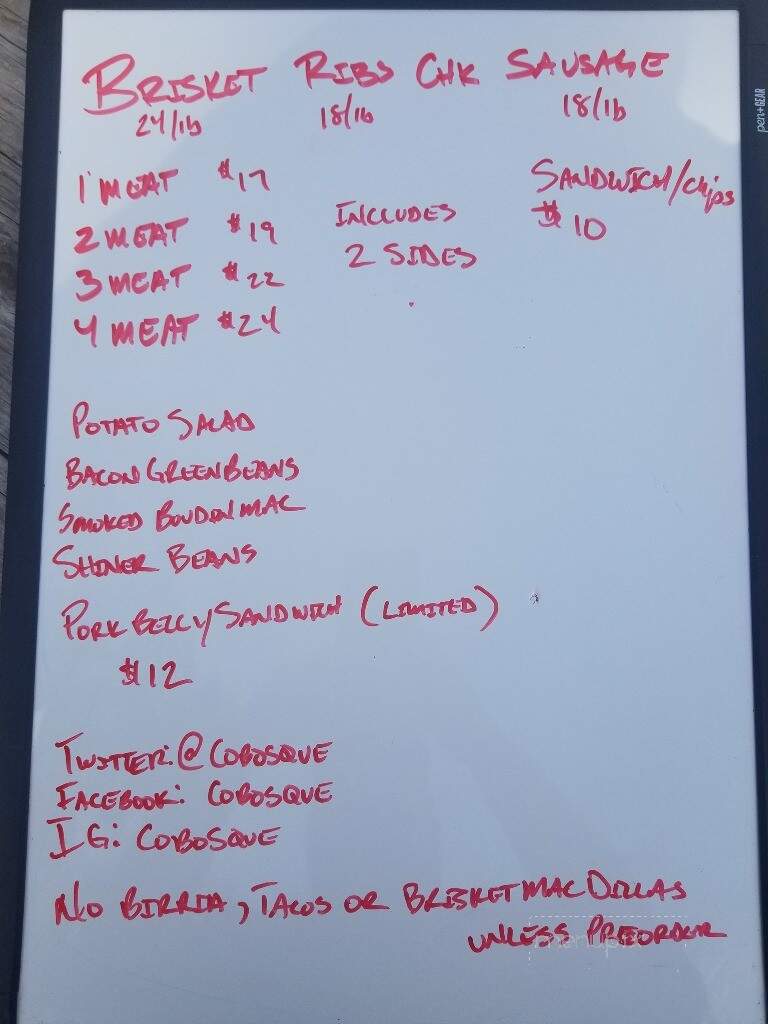 BRISKET RIBS CHK SAUSAGE
24/lb 18/lb 18/lb
1 MEAT $17
2 MEAT $19
3 MEAT $22
4 MEAT $24
INCLUDES
2 SIDES
SANDWICH/chips
$10
POTATO SALAD
BACON GREEN BEANS
SMOKED BOUDIN MAC
SHINER BEANS
PORK BELLY SANDWICH (LIMITED)
$12
TWITTER: @COBOSQUE
FACEBOOK: COBOSQUE
IG: COBOSQUE
NO BIRRIA, TACOS OR BRISKET MAC DILLAS
UNLESS PREORDER
menupix
pen+GEAR